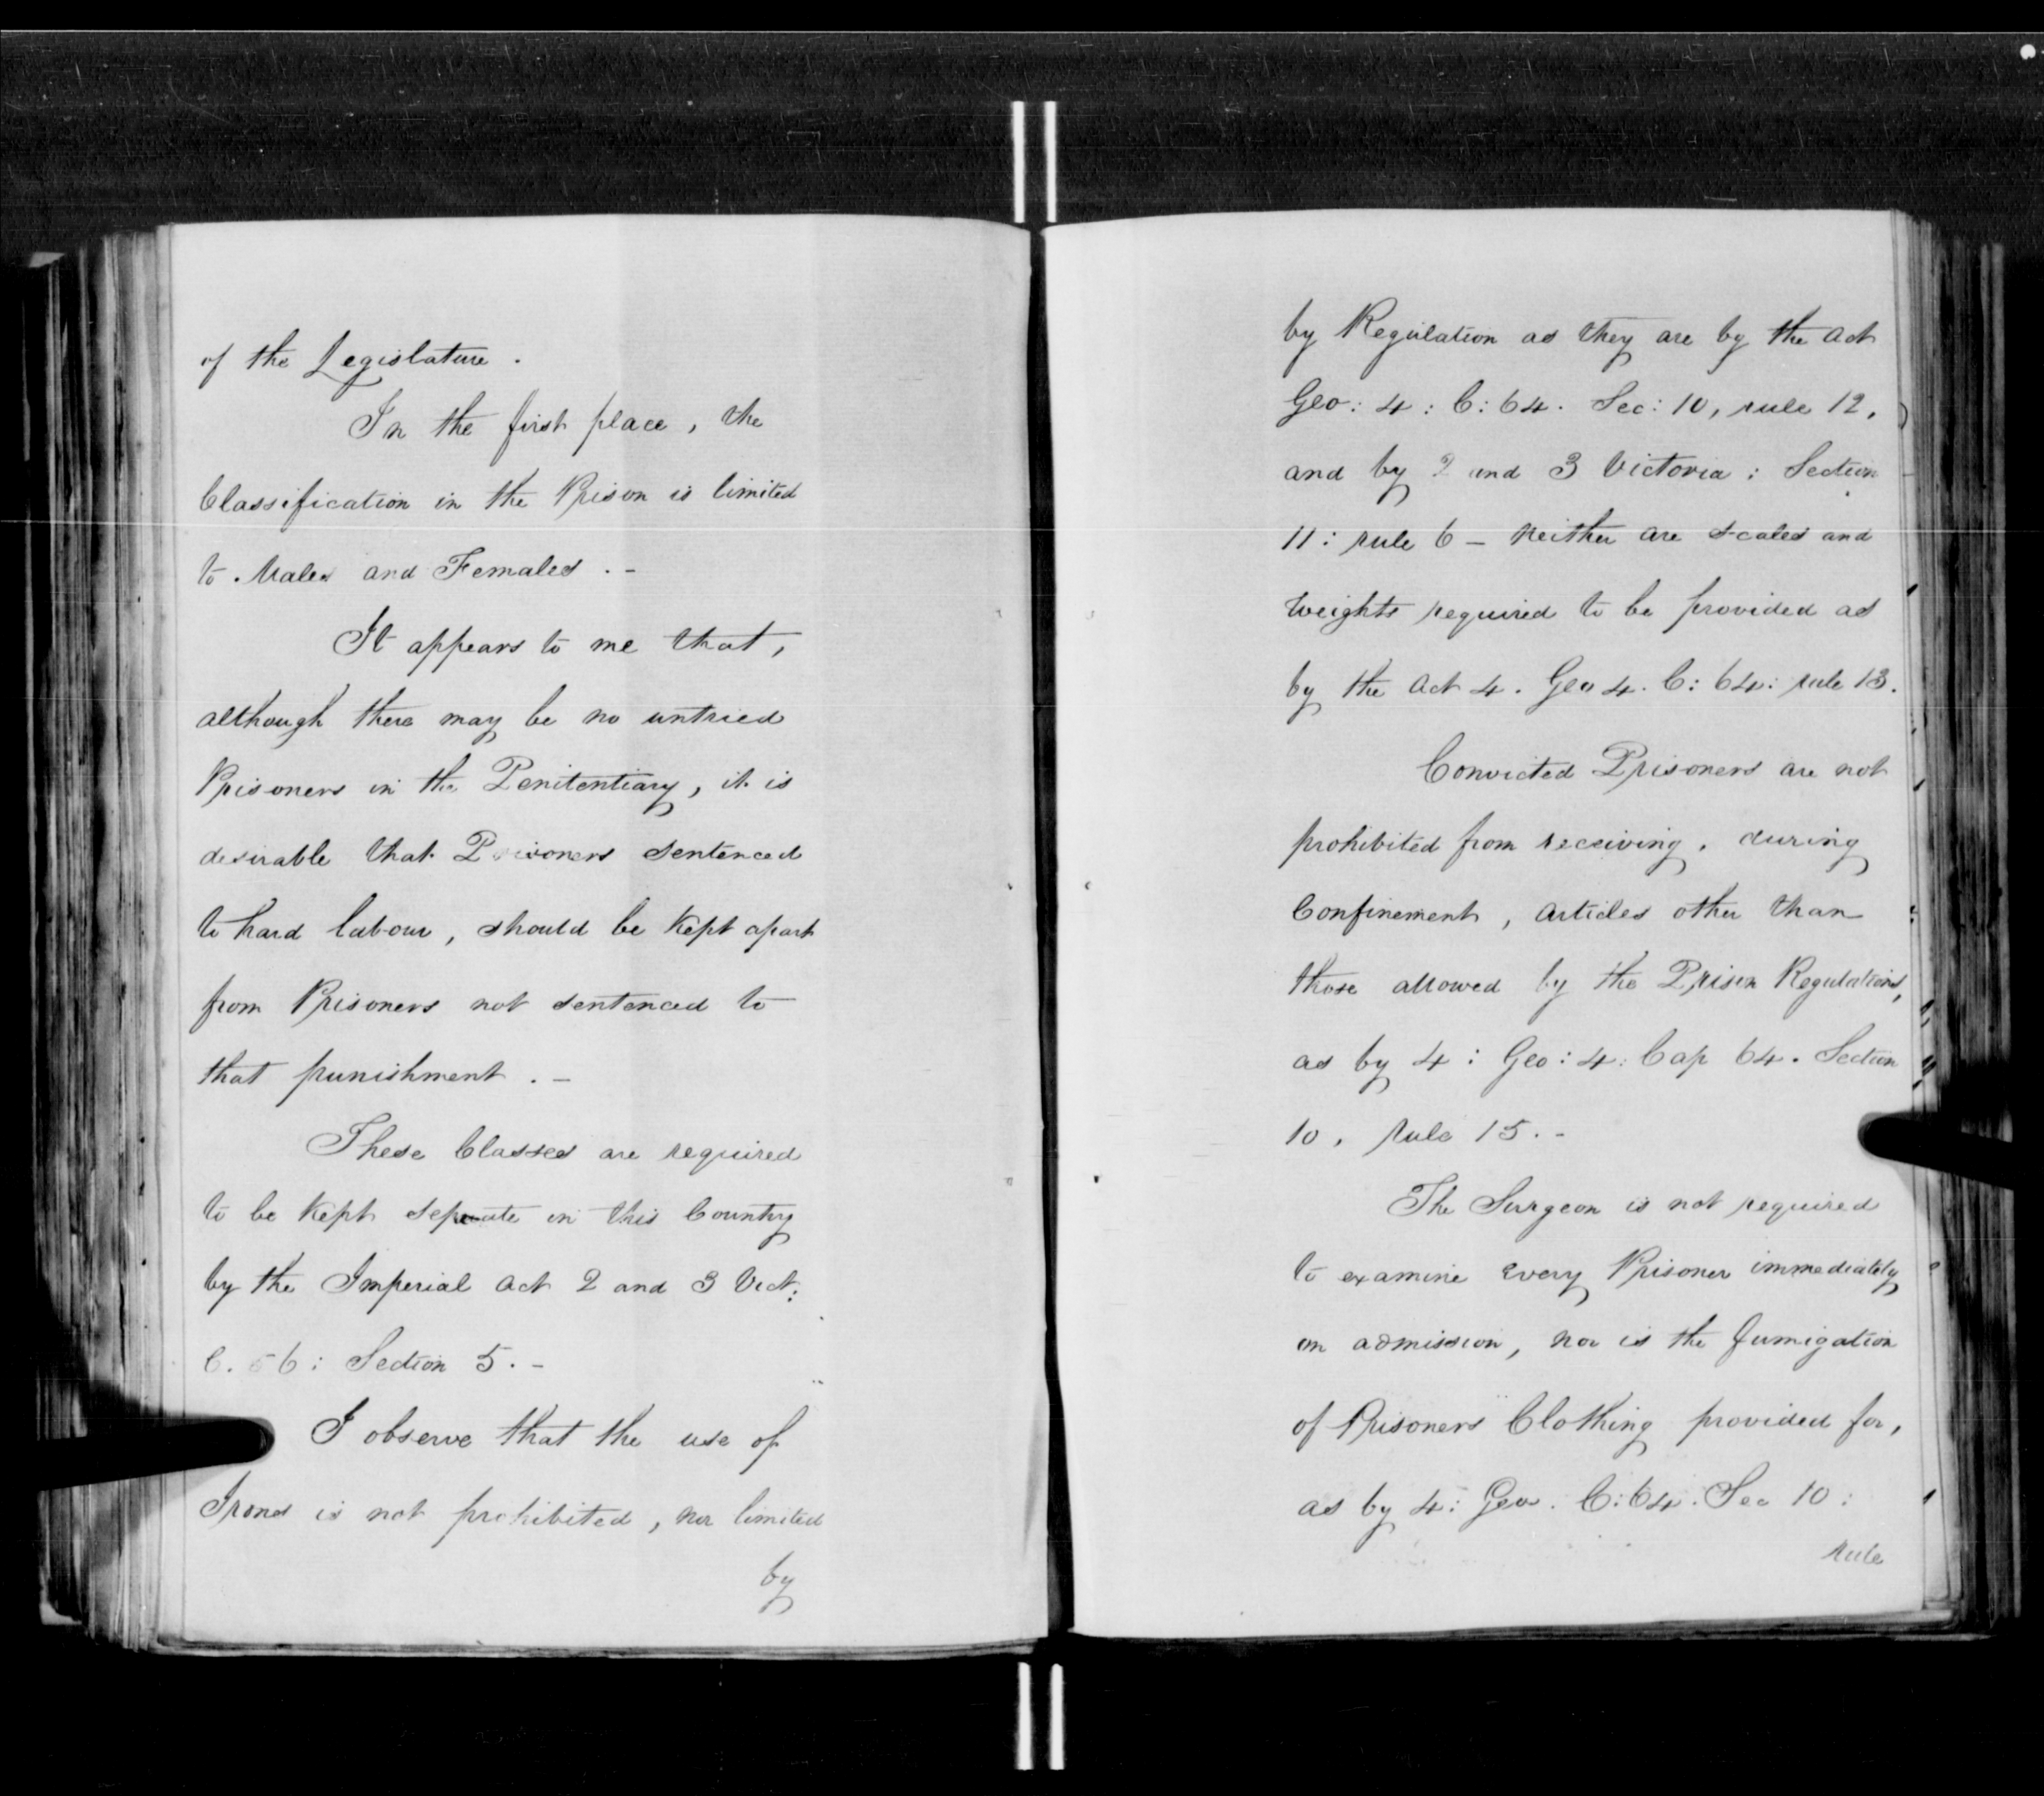 of the Legislature.
In the first place, the
Classification in the Prison is limited
to Males and Females. -
It appears to me that,
although there may be no untried
Prisoners in the Penitentiary, it is
desirable that Prisoners sentenced
to hard labour, should be kept apart
from Prisoners not sentenced to
that punishment. -
These Classes are required
to be kept separate in this Country
by the Imperial Act 2 and 3 Vict:
C. 56: Section 5. -
I observe that the use of
Irons is not prohibited, nor limited
by
by Regulation as they are by the Act
Geo: 4: C: 64. Sec: 10, rule 12,
and by 2 and 3 Victoria: Section
11: rule 6 - Neither are scales and
Weights required to be provided as
by the Act 4. Geo 4. C: 64: rule 13.
Convicted Prisoners are not
prohibited from receiving, during
Confinement, articles other than
those allowed by the Prison Regulations,
as by 4: Geo: 4: Cap 64. Section
10, rule 15. -
The Surgeon is not required
to examine every Prisoner immediately
on admission, nor is the fumigation
of Prisoners Clothing provided for,
as by 4: Geo. C: 64. Sec 10:
rule